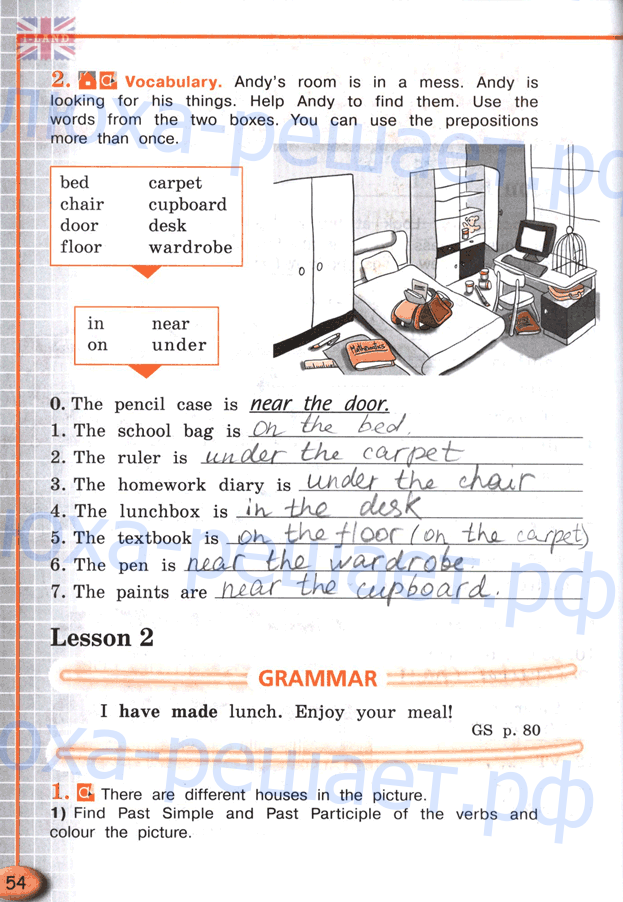 I-LAND
2. Vocabulary. Andy's room is in a mess. Andy is
looking for his things. Help Andy to find them. Use the
words from the two boxes. You can use the prepositions
more than once.
bed carpet
chair cupboard
door desk
floor wardrobe
in near
on under
Mathematics
0. The pencil case is near the door.
1. The school bag is on the bed.
2. The ruler is under the carpet
3. The homework diary is under the chair
4. The lunchbox is in the desk
5. The textbook is on the floor (on the carpet)
6. The pen is near the wardrobe.
7. The paints are near the cupboard.
Lesson 2
GRAMMAR
I have made lunch. Enjoy your meal!
GS p. 80
1. There are different houses in the picture.
1) Find Past Simple and Past Participle of the verbs and
colour the picture.
54
люха-решает.рф
люха-решает.рф
люха-решает.рф